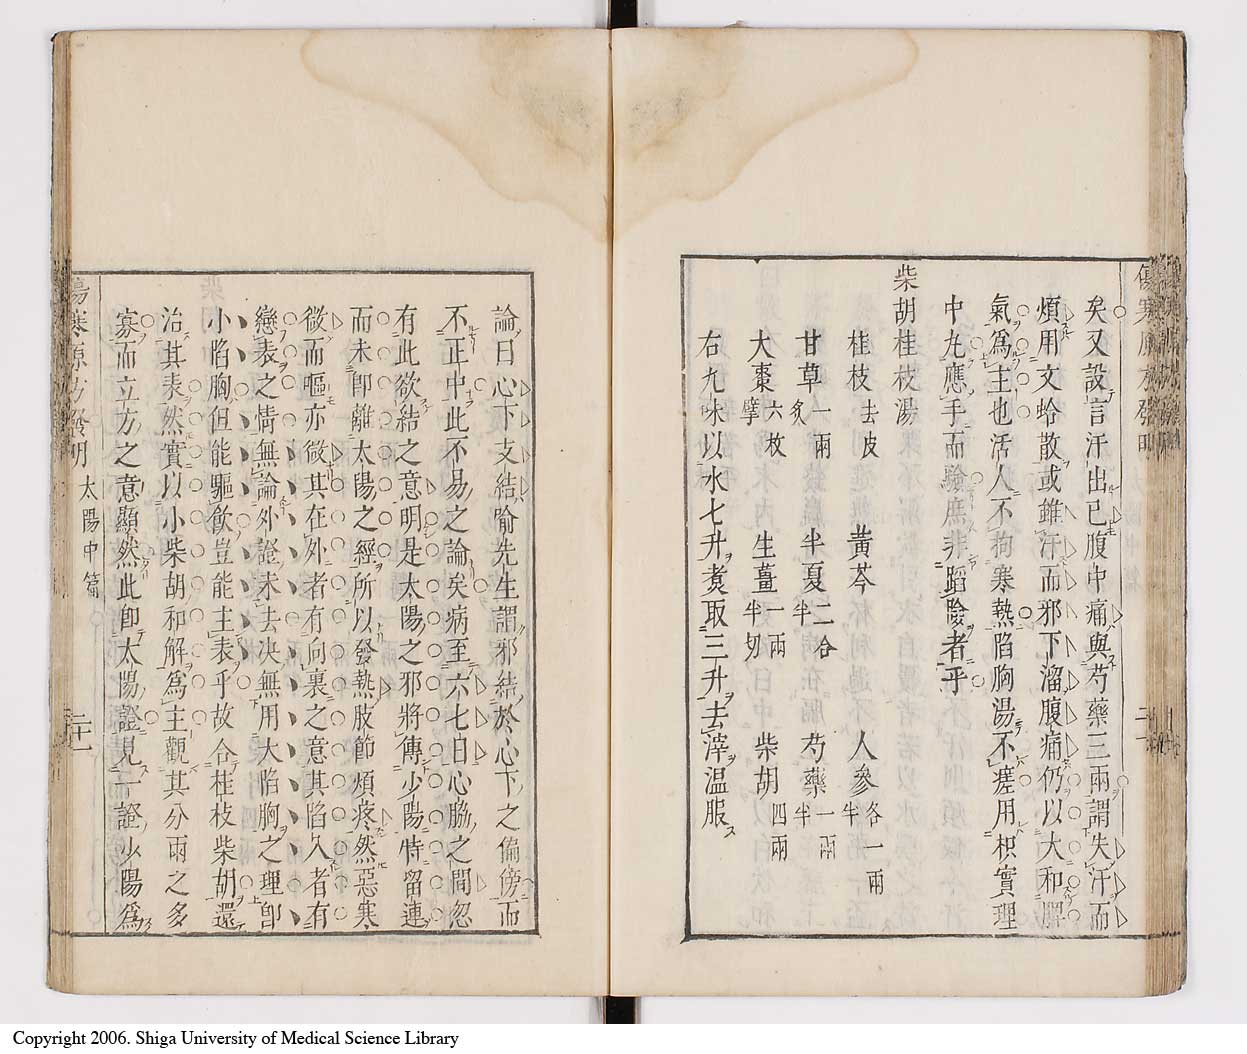 矣又設言汗出已腹中痛與芍藥三兩謂失汗而
煩用文蛤散或雖汗而邪下溜腹痛仍以大和脾
氣為主也活人不拘寒熱陷胸湯不瘥用枳實理
中丸應手而驗庶非蹈險者乎
柴胡桂枝湯
桂枝去皮 黃芩 人參各一兩半
甘草一兩炙 半夏二合半 芍藥一兩半
大棗六枚擘 生薑一兩半切 柴胡四兩
右九味以水七升煑取三升去滓温服
論曰心下支結喻先生謂邪結於心下之偏傍而
不正中此不易之論矣病至六七日心脇之間忽
有此欲結之意明是太陽之邪將傳少陽特留連
而未卽離太陽之經所以發熱肢節煩疼然惡寒
微而嘔亦微其在外者有向裏之意其陷入者有
戀表之情無論外證未去决無用大陷胸之理卽
小陷胸但能驅飲豈能主表乎故合桂枝柴胡還
治其表然實以小柴胡和解為主觀其分兩之多
寡而立方之意顯然此卽太陽證見一證少陽為
傷寒源方發明 太陽中篇 二十一
Copyright 2006. Shiga University of Medical Science Library